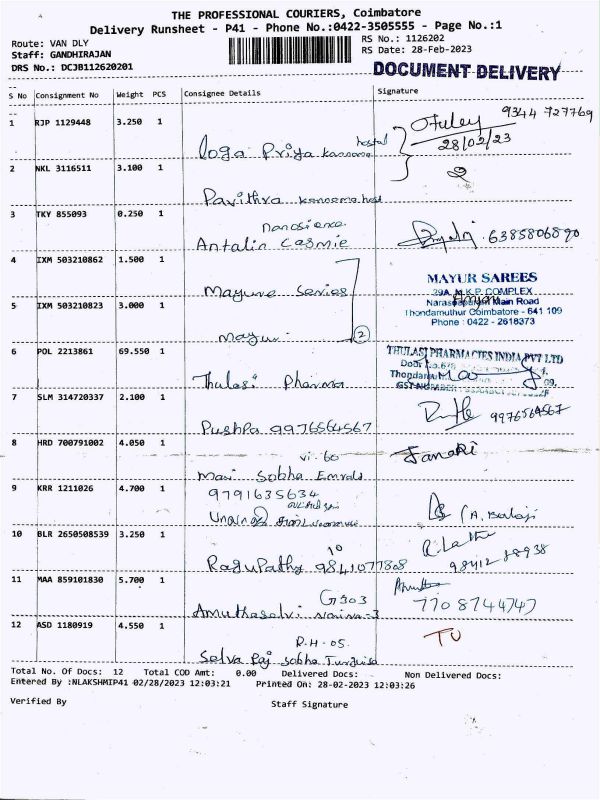 THE PROFESSIONAL COURIERS, Coimbatore
Delivery Runsheet - P41 - Phone No.:0422-3505555 - Page No.:1
Route: VAN DLY
RS No.: 1126202
Staff: GANDHIRAJAN
RS Date: 28-Feb-2023
DRS No.: DCJB112620201
DOCUMENT DELIVERY
S No Consignment No Weight PCS Consignee Details Signature
1 RJP 1129448 3.250 1
9344 727769
28/02/23
hostel
Loga Priya
2 NKL 3116511 3.100 1
2
Pavithra
3 TKY 855093 0.250 1
6385806890
4 IXM 503210862 1.500 1
MAYUR SAREES
39A, M.K.P. COMPLEX
Main Road
Thondamuthur Coimbatore - 641 109
Phone : 0422 - 2618373
5 IXM 503210823 3.000 1
2
6 POL 2213861 69.550 1
THULASI PHARMACIES INDIA PVT LTD
GST NUMBER
Thulasi Pharma
7 SLM 314720337 2.100 1
9976564567
Pushpa 9976564567
8 HRD 700791002 4.050 1
Janaki
Sobha
9 KRR 1211026 4.700 1
9791635634
10 BLR 2650508539 3.250 1
10
98412 88938
Ragupathy 9841077808
11 MAA 859101830 5.700 1
G303
7708744747
Amuthaselvi
12 ASD 1180919 4.550 1
R.H-05.
Selva Raj Sobha
Total No. Of Docs: 12 Total COD Amt: 0.00 Delivered Docs: Non Delivered Docs:
Entered By :NLAKSHMIP41 02/28/2023 12:03:21 Printed On: 28-02-2023 12:03:26
Verified By Staff Signature